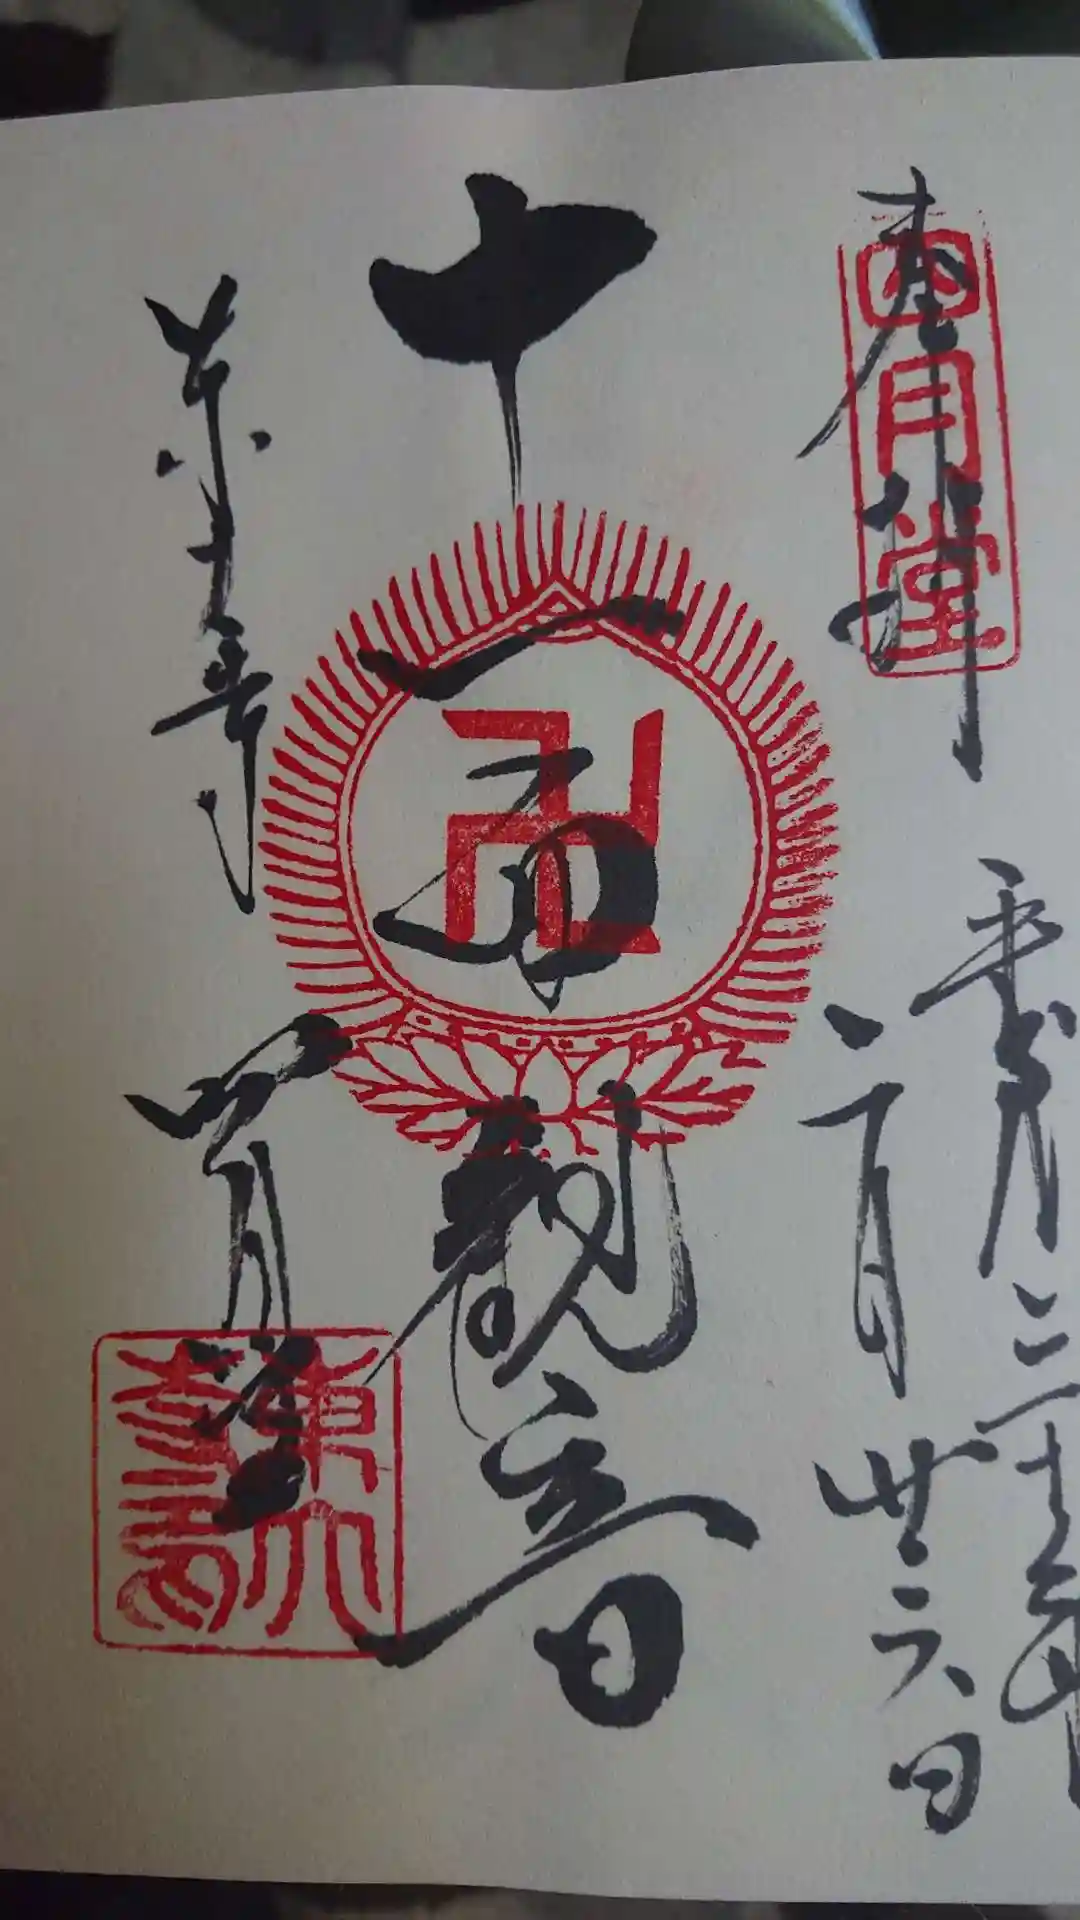 奉拝
四月堂
平成三十一年
二月廿六日
十一面観音
東大寺
四月堂
東大寺印